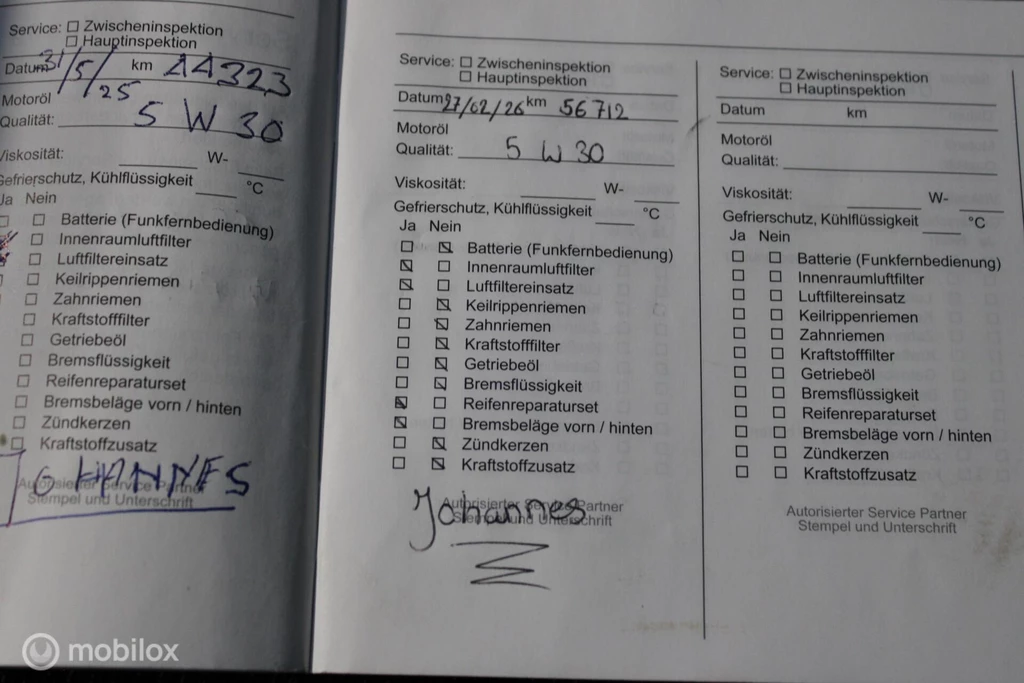 Service: ☐ Zwischeninspektion
☐ Hauptinspektion
Datum 31/5/25 km 44323
Motoröl
Qualität: 5 W 30
Viskosität: W-
Gefrierschutz, Kühlflüssigkeit °C
Ja Nein
Batterie (Funkfernbedienung)
Innenraumluftfilter
Luftfiltereinsatz
Keilrippenriemen
Zahnriemen
Kraftstofffilter
Getriebeöl
Bremsflüssigkeit
Reifenreparaturset
Bremsbeläge vorn / hinten
Zündkerzen
Kraftstoffzusatz
Autorisierter Service Partner
Stempel und Unterschrift
Service: ☐ Zwischeninspektion
☐ Hauptinspektion
Datum 27/02/26 km 56712
Motoröl
Qualität: 5 W 30
Viskosität: W-
Gefrierschutz, Kühlflüssigkeit °C
Ja Nein
Batterie (Funkfernbedienung)
Innenraumluftfilter
Luftfiltereinsatz
Keilrippenriemen
Zahnriemen
Kraftstofffilter
Getriebeöl
Bremsflüssigkeit
Reifenreparaturset
Bremsbeläge vorn / hinten
Zündkerzen
Kraftstoffzusatz
Johannes
Autorisierter Service Partner
Stempel und Unterschrift
Service: ☐ Zwischeninspektion
☐ Hauptinspektion
Datum km
Motoröl
Qualität:
Viskosität: W-
Gefrierschutz, Kühlflüssigkeit °C
Ja Nein
Batterie (Funkfernbedienung)
Innenraumluftfilter
Luftfiltereinsatz
Keilrippenriemen
Zahnriemen
Kraftstofffilter
Getriebeöl
Bremsflüssigkeit
Reifenreparaturset
Bremsbeläge vorn / hinten
Zündkerzen
Kraftstoffzusatz
Autorisierter Service Partner
Stempel und Unterschrift
mobilox